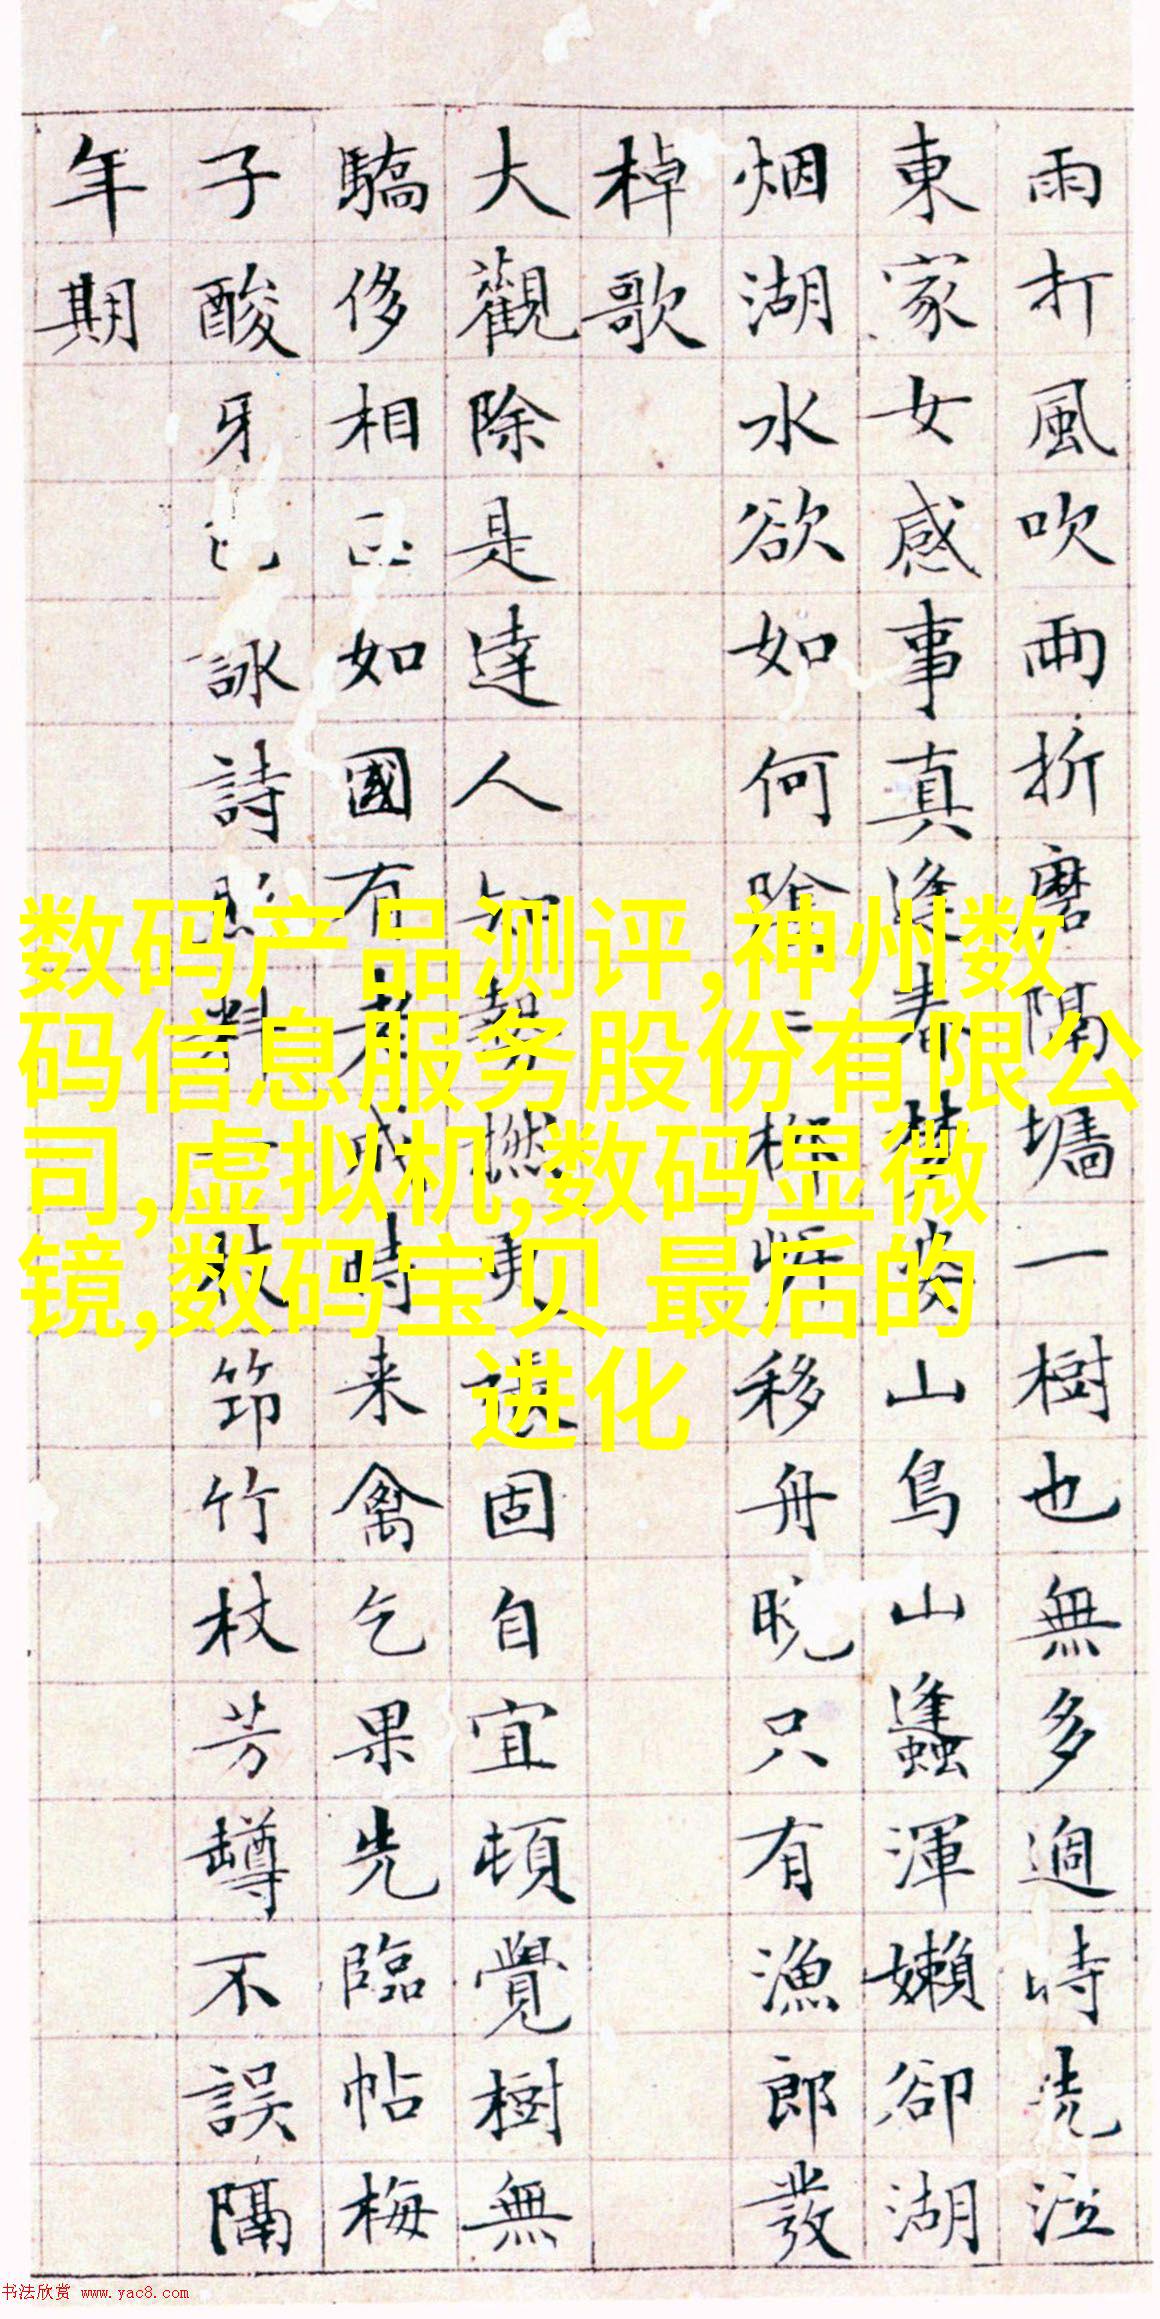 雨打風吹兩折磨隔墻一樹也無多過時洗泣
東家女感事真逢春夢婆山鳥山蠭渾嬾卻湖
烟湖水欲如何移舟晚只有漁郎發
棹歌
大觀除是達人知撚更固自宜頓覺樹無
驕侈相如國有老成時来禽乞果先臨帖梅
子酸牙詠詩照料一枝筇竹杖芳罇不誤隔
年期
数码产品测评,神州数
码信息服务股份有限公
司,虚拟机,数码显微
镜,数码宝贝 最后的
进化
书法欣赏 www.yac8.com